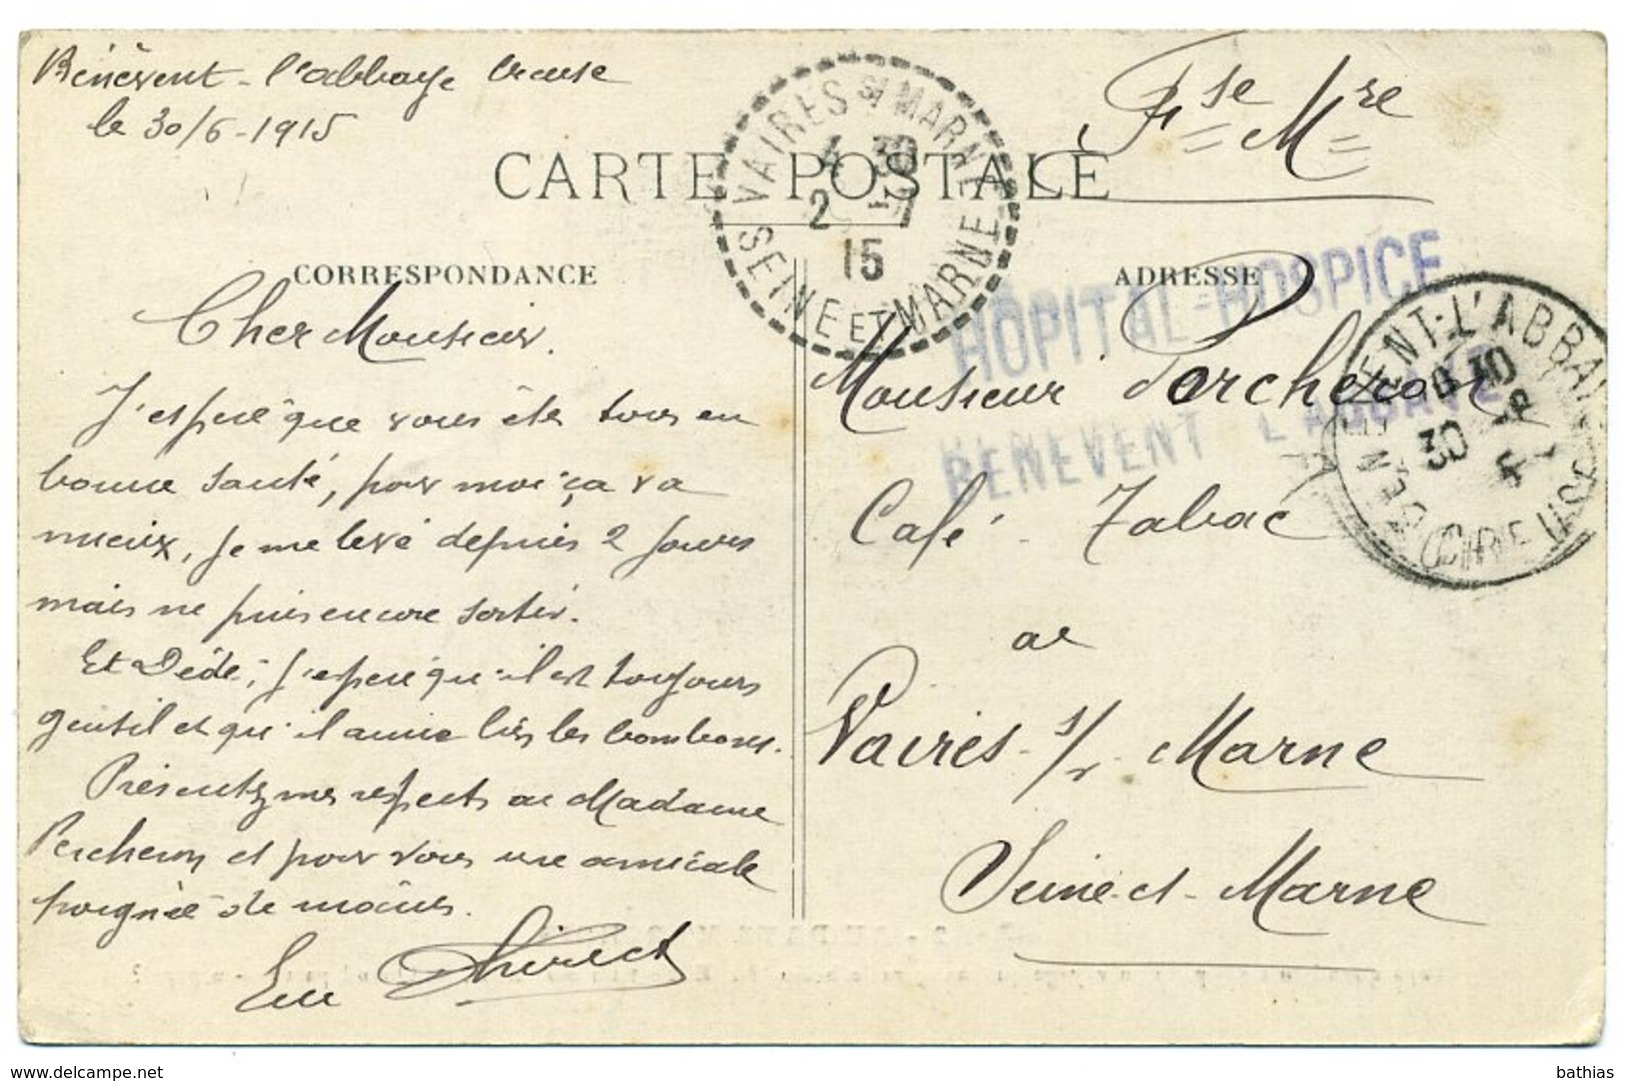 Bénévent-l'abbaye Creuse
le 30/6-1915
Fse Mre
CARTE POSTALE
VAIRES S/ MARNE
4 30
2 -7
15
SEINE ET MARNE
CORRESPONDANCE
ADRESSE
HÔPITAL-HOSPICE
BENEVENT L'ABBAYE
BENEVENT-L'ABBAYE
30
CREUSE
Cher Monsieur.
J'espère que vous êtes tous en
bonne santé, pour moi ça va
mieux, je me lève depuis 2 jours
mais ne puis encore sortir.
Et Dédé, j'espère qu'il est toujours
gentil et qu'il aime les bonbons.
Présentez mes respects à Madame
Percheron et pour vous une amicale
poignée de mains.
Monsieur Percheron
Café-Tabac
à
Vaires-s/-Marne
Seine-et-Marne
bathias